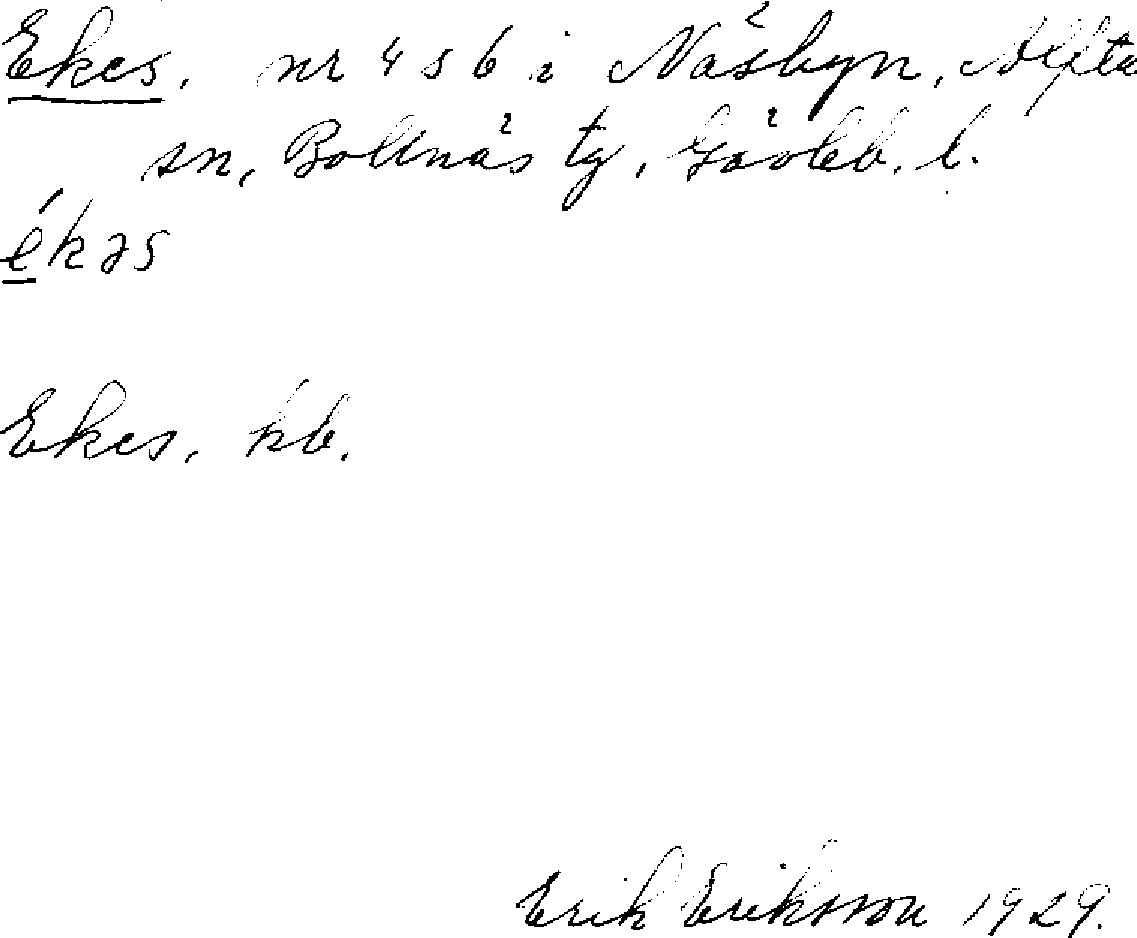 Ekes, nr 4 o 6 i Näsbyn, Alfta
sn, Bollnäs tg, Gävleb. l.
ékəs
Ekes, kb.
Erik Eriksson 1929.